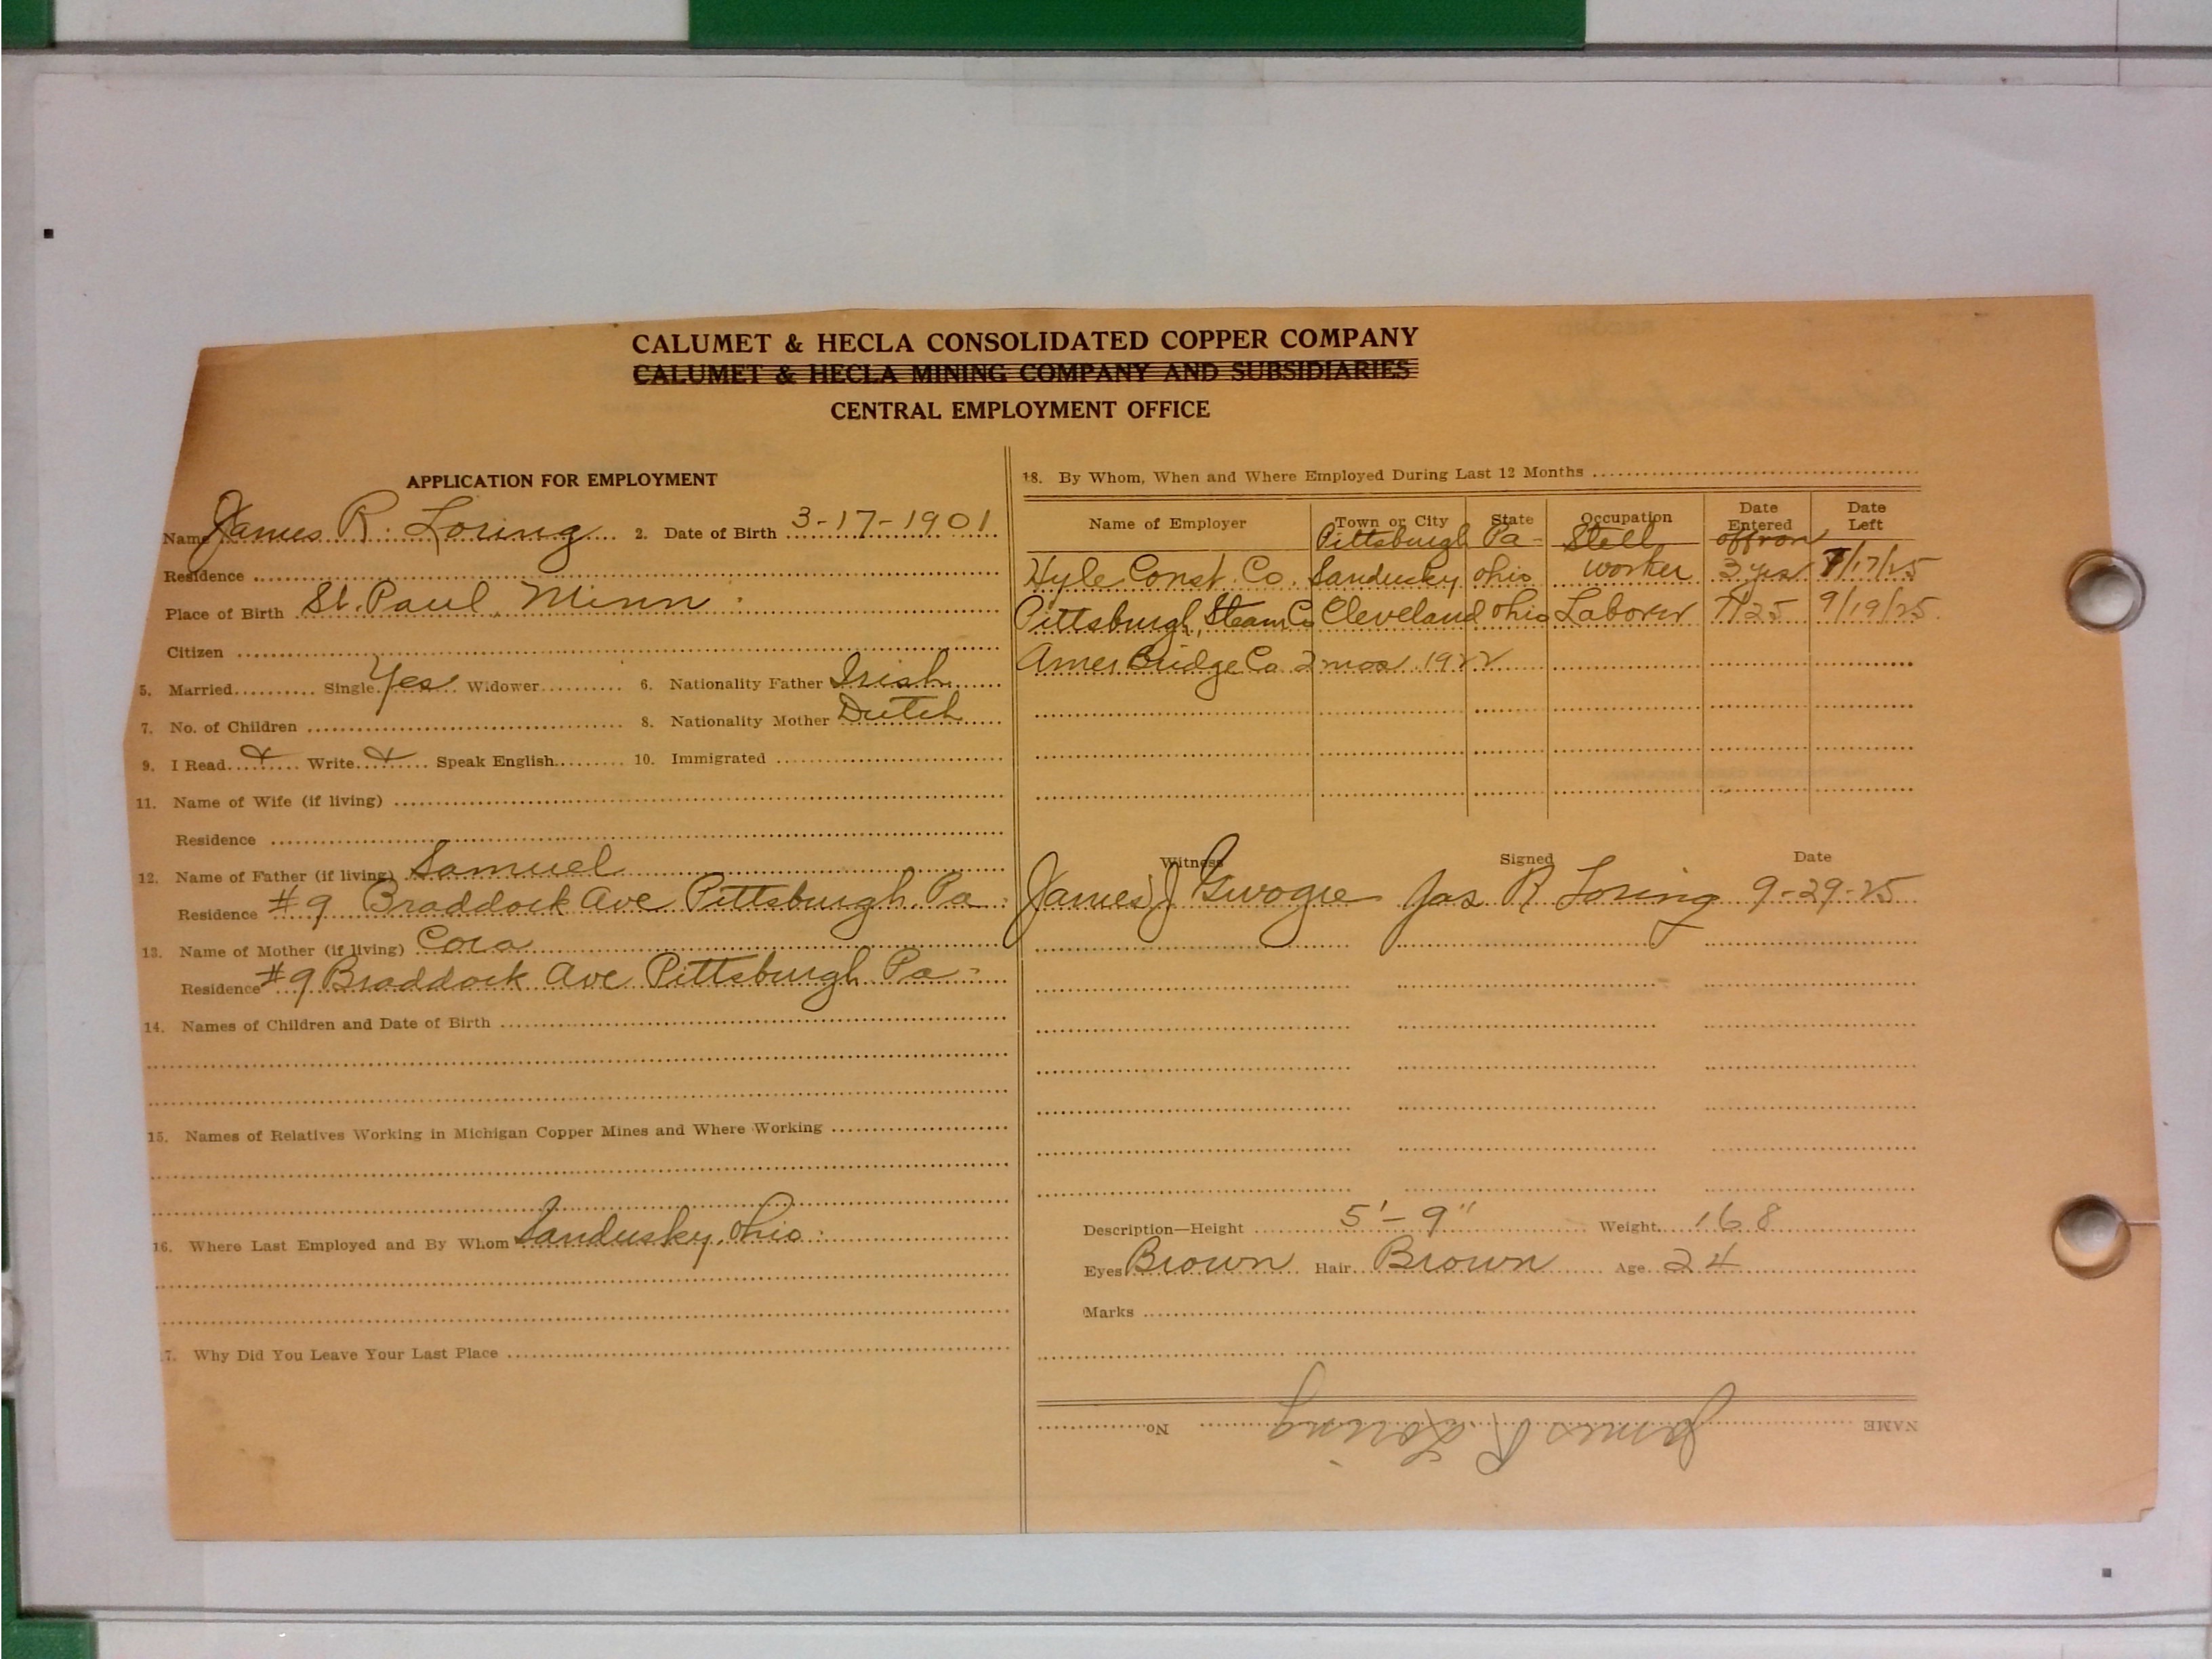 CALUMET & HECLA CONSOLIDATED COPPER COMPANY
CALUMET & HECLA MINING COMPANY AND SUBSIDIARIES
CENTRAL EMPLOYMENT OFFICE
APPLICATION FOR EMPLOYMENT
Name James R. Loring 2. Date of Birth 3-17-1901
Residence
Place of Birth St. Paul, Minn
Citizen
5. Married Single Yes Widower 6. Nationality Father Irish
7. No. of Children 8. Nationality Mother Dutch
9. I Read X Write X Speak English 10. Immigrated
11. Name of Wife (if living)
Residence
12. Name of Father (if living) Samuel
Residence #9 Braddock Ave Pittsburgh Pa
13. Name of Mother (if living) Cora
Residence #9 Braddock Ave Pittsburgh Pa
14. Names of Children and Date of Birth
15. Names of Relatives Working in Michigan Copper Mines and Where Working
16. Where Last Employed and By Whom Sandusky, Ohio
17. Why Did You Leave Your Last Place
18. By Whom, When and Where Employed During Last 12 Months
Name of Employer Town or City State Occupation Date Entered Date Left
Pittsburgh Pa Steel off & on
Hyle Const. Co. Sandusky Ohio Worker 3 yrs 7/17/25
Pittsburgh Steam Co Cleveland Ohio Laborer 7/25 9/19/25
Amer Bridge Co 2 mos 1922
Witness Signed Date
James J Jas R Loring 9-29-25
Description—Height 5'-9" Weight 168
Eyes Brown Hair Brown Age 24
Marks
NAME James R. Loring No.